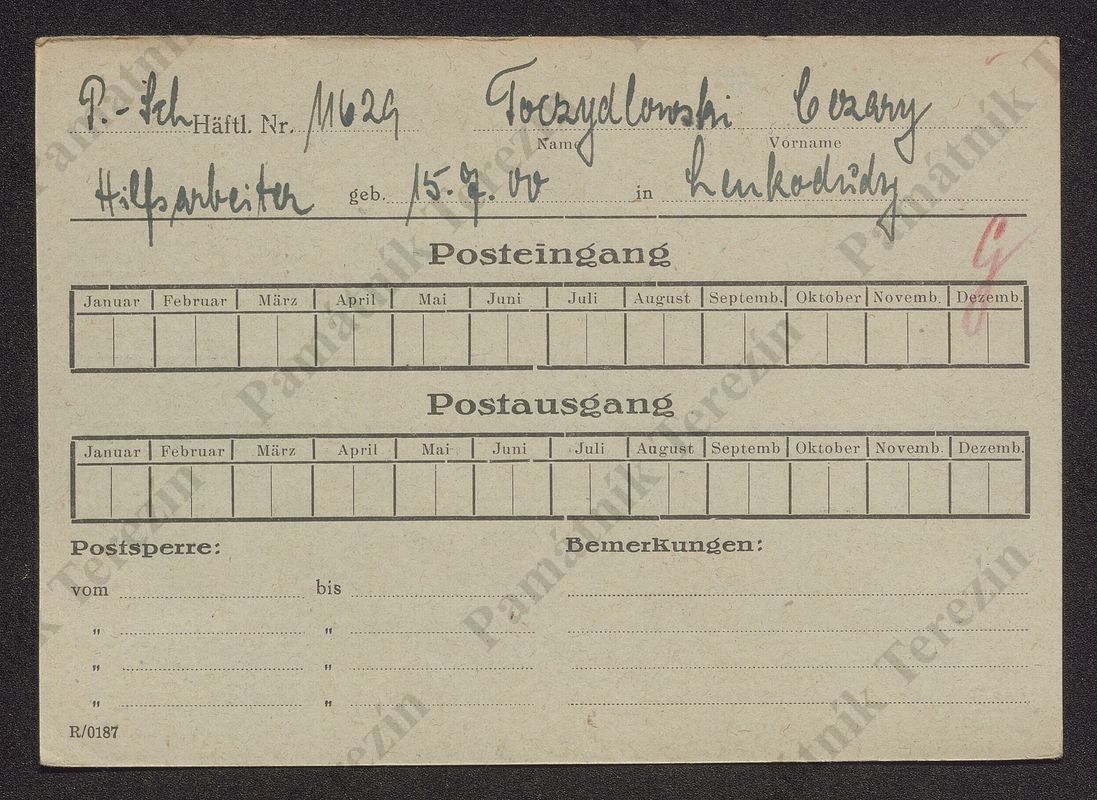 P.-Sch Häftl. Nr. 11629 Toczydlowski Cezary
Name Vorname
Hilfsarbeiter geb. 15.7.00 in
G
Posteingang
Januar Februar März April Mai Juni Juli August Septemb. Oktober Novemb. Dezemb.
Postausgang
Januar Februar März April Mai Juni Juli August Septemb Oktober Novemb. Dezemb.
Postsperre: Bemerkungen:
vom bis
" "
" "
" "
R/0187
Památník Terezín